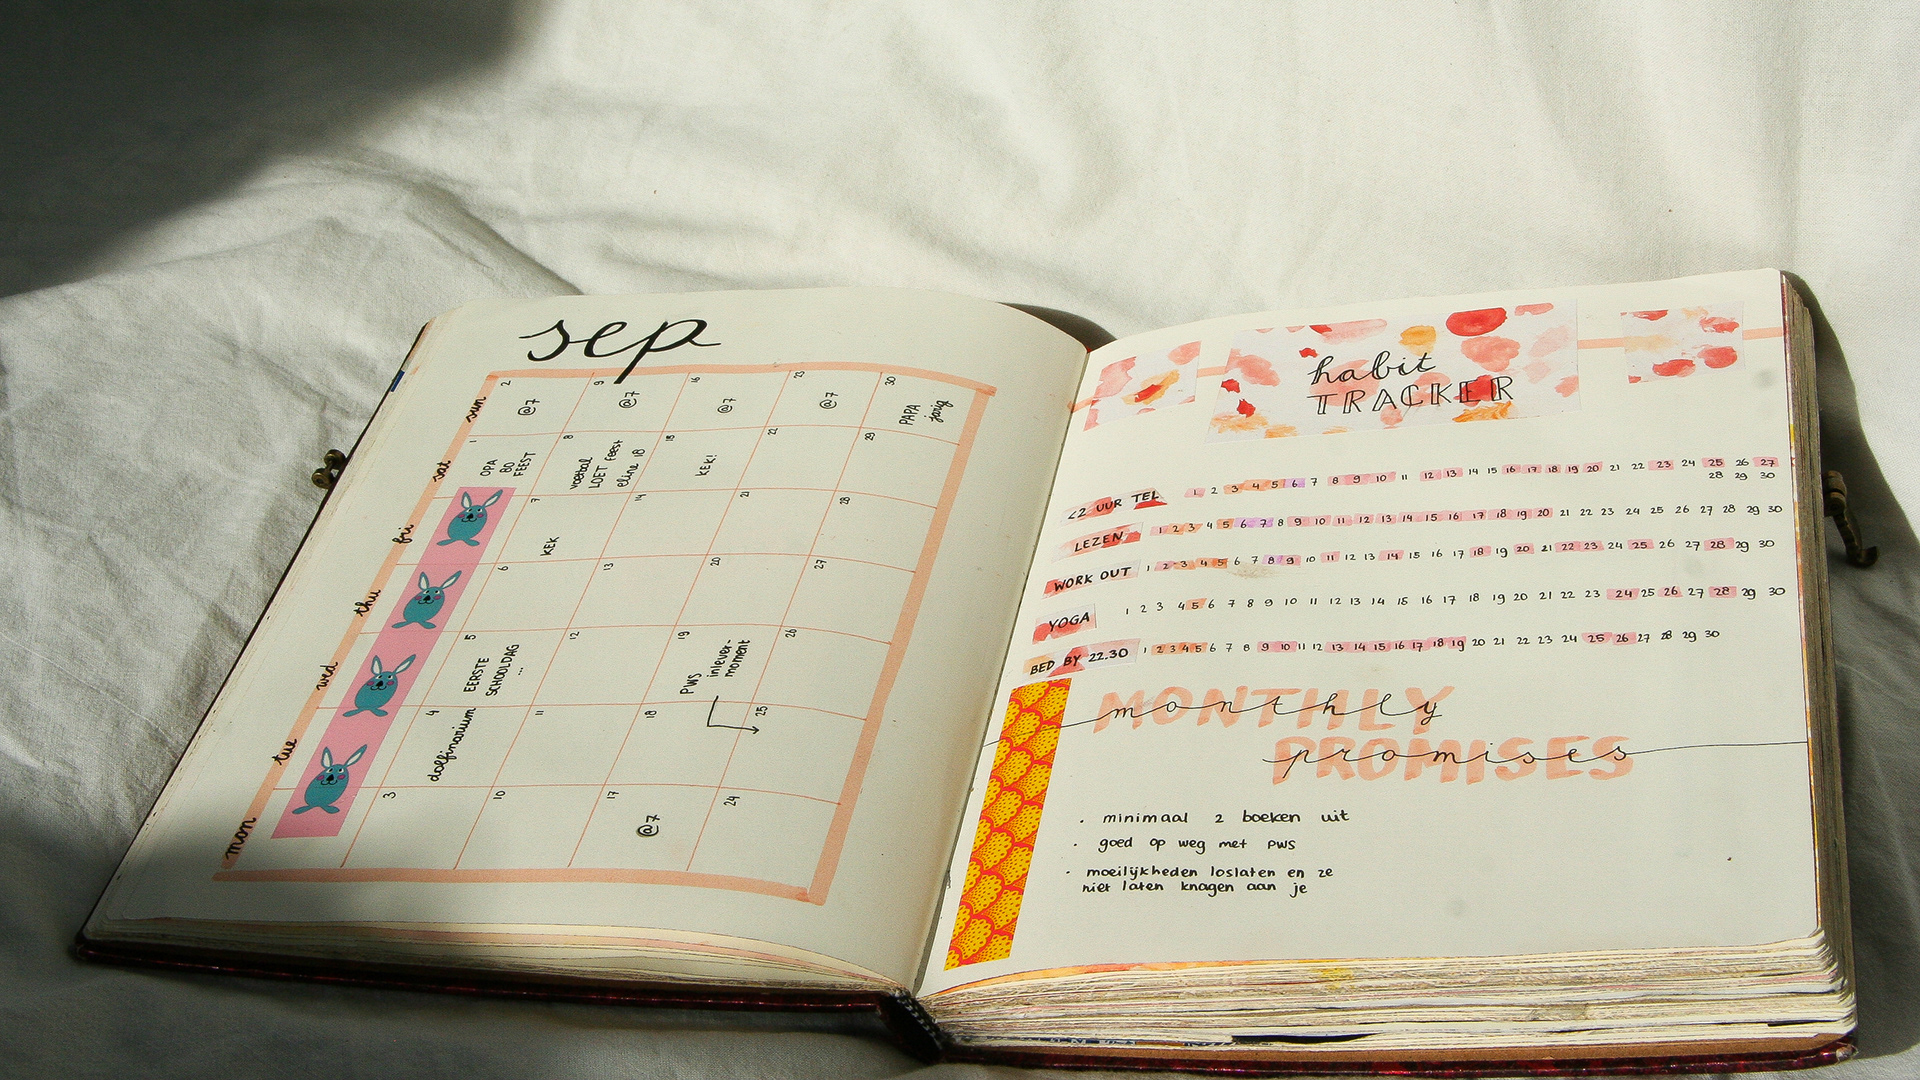 sep
sun
2
@7
9
@7
16
@7
23
@7
30
PAPA
jarig
sat
1
OPA
80
FEEST
8
voetbal
LOET feest
eline 18
15
KEK!
22
29
fri
7
KEK
14
21
28
thu
6
13
20
27
wed
5
EERSTE
SCHOOLDAG
...
12
19
PWS
inlever-
moment
26
tue
4
dolfinarium
11
18
25
mon
3
10
17
@7
24
habit
TRACKER
<2 UUR TEL 1 2 3 4 5 6 7 8 9 10 11 12 13 14 15 16 17 18 19 20 21 22 23 24 25 26 27
28 29 30
LEZEN 1 2 3 4 5 6 7 8 9 10 11 12 13 14 15 16 17 18 19 20 21 22 23 24 25 26 27 28 29 30
WORK OUT 1 2 3 4 5 6 7 8 9 10 11 12 13 14 15 16 17 18 19 20 21 22 23 24 25 26 27 28 29 30
YOGA 1 2 3 4 5 6 7 8 9 10 11 12 13 14 15 16 17 18 19 20 21 22 23 24 25 26 27 28 29 30
BED BY 22.30 1 2 3 4 5 6 7 8 9 10 11 12 13 14 15 16 17 18 19 20 21 22 23 24 25 26 27 28 29 30
MONTHLY
monthly
PROMISES
promises
· minimaal 2 boeken uit
· goed op weg met PWS
· moeilijkheden loslaten en ze
niet laten knagen aan je